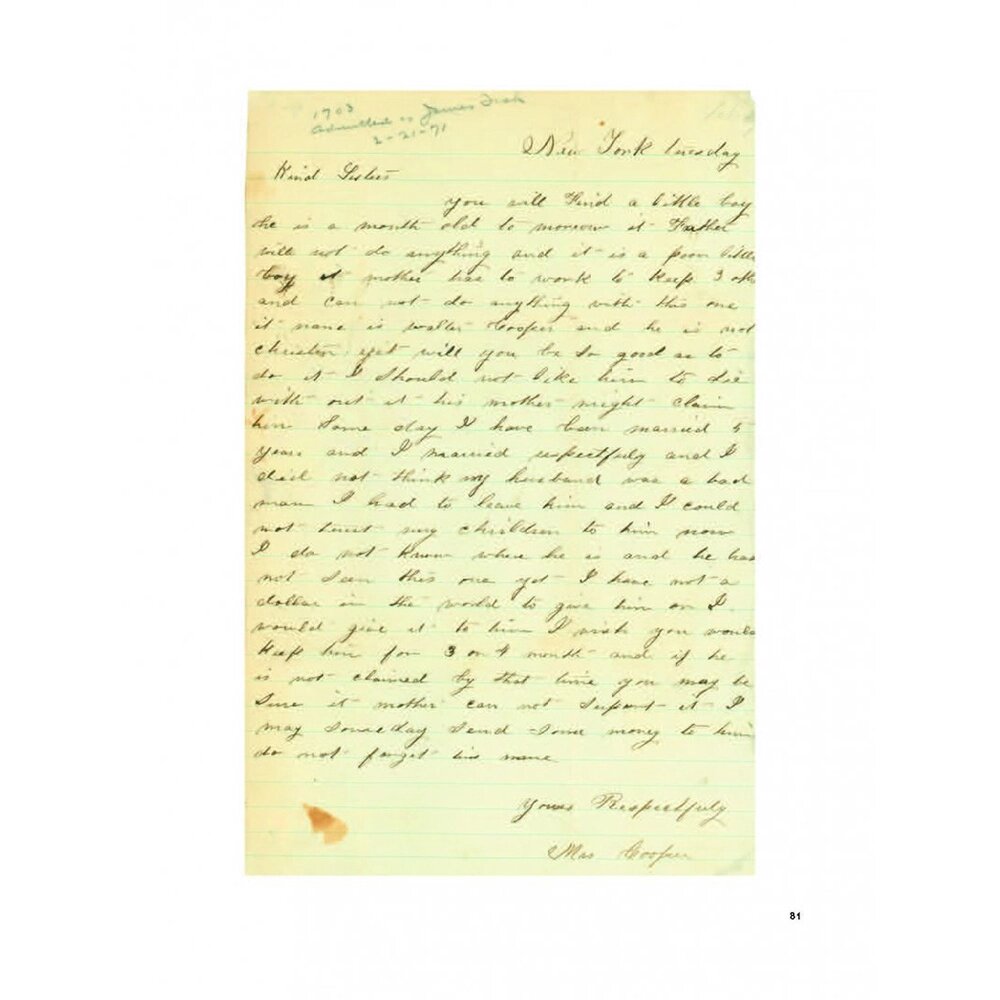 1708
admitted as James Fish
2-21-71
New York tuesday
Kind Sisters
you will Find a little boy
he is a month old to morrow it Father
will not do anything and it is a poor little
boy it mother has to work to keep 3 others
and can not do anything with this one
it name is walter Cooper and he is not
christen yet will you be so good as to
do it I should not like him to die
with out it his mother might claim
him some day I have been married 5
years and I married respectfuly and I
did not think my husband was a bad
man I had to leave him and I could
not trust my children to him now
I do not know where he is and he has
not seen this one yet I have not a
dollar in the world to give him or I
would give it to him I wish you would
keep him for 3 or 4 month and if he
is not claimed by that time you may be
sure it mother can not suport it I
may someday send some money to him
do not forget his name
Yours Respectfuly
Mrs Cooper
81